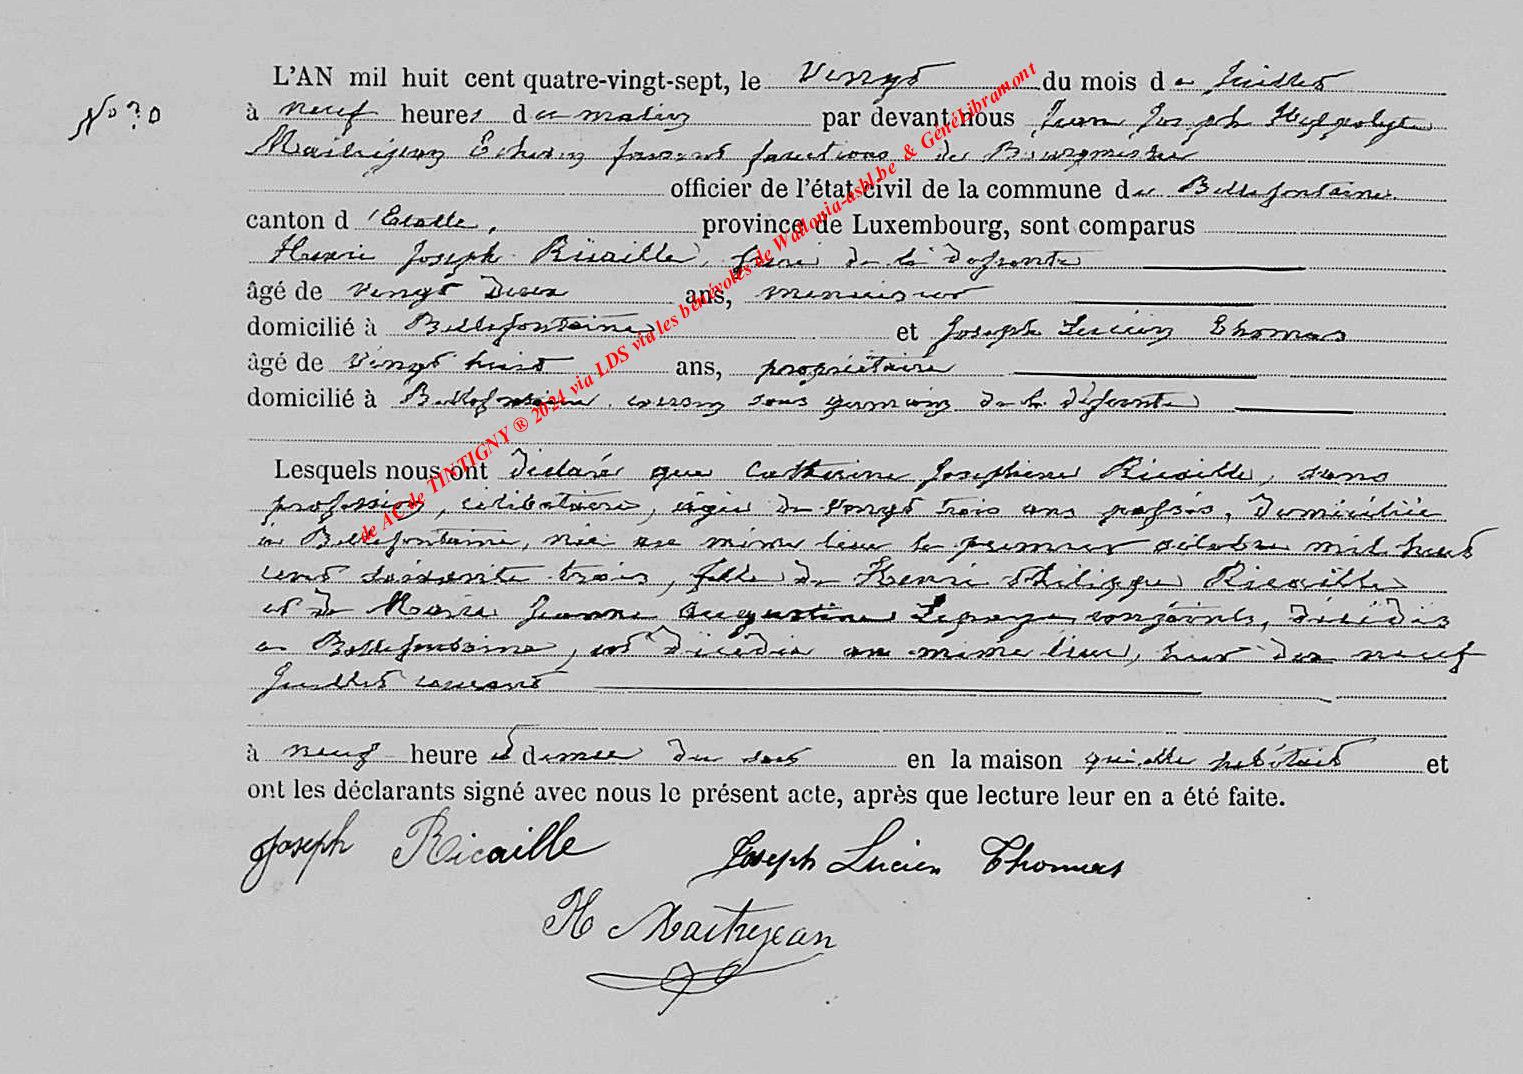 L'AN mil huit cent quatre-vingt-sept, le Vingt du mois de Juillet
No 20
à neuf heures du matin par devant nous Jean Joseph Hyppolyte
Maitrejean Echevin faisant fonctions de Bourgmestre
officier de l'état civil de la commune de Bellefontaine
canton d'Etalle, province de Luxembourg, sont comparus
Henri Joseph Ricaille, frère de la défunte
âgé de vingt Deux ans, menuisier
domicilié à Bellefontaine et Joseph Lucien Thomas
âgé de Vingt huit ans, propriétaire
domicilié à Bellefontaine cousin sous germain de la défunte
Lesquels nous ont déclaré que Catherine Josephine Ricaille, sans
profession, célibataire, agée de vingt trois ans passés, domiciliée
à Bellefontaine, née au même lieu le premier octobre mil huit
cent soixante trois, fille de Henri Philippe Ricaille
et de Marie Jeanne Augustine Lepage conjoints, décédés
à Bellefontaine, est décédée au même lieu, hier dix neuf
Juillet courant
à neuf heure et demie du soir en la maison qu'elle habitait et
ont les déclarants signé avec nous le présent acte, après que lecture leur en a été faite.
Joseph Ricaille Joseph Lucien Thomas
H Maitrejean
de AC de TINTIGNY ® 2024 via LDS via les bénévoles de Wallonia-asbl.be & GénéLibramont